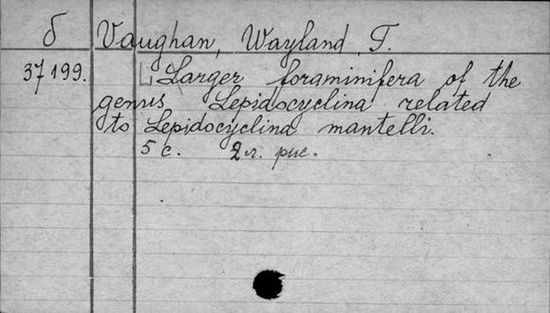 б Vaughan, Wayland, T.
37199. Larger foraminifera of the
genus Lepidocyclina related
to Lepidocyclina mantelli.
5 с. 2 л. рис.